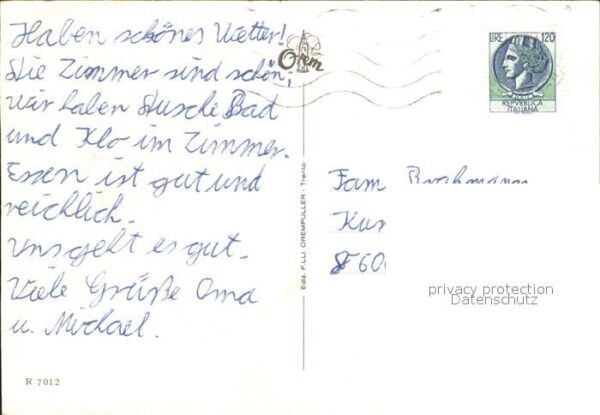 Haben schönes Wetter!
Die Zimmer sind schön,
wir haben Dusche Bad
und Klo im Zimmer.
Essen ist gut und
reichlich.
Uns geht es gut.
Viele Grüße Oma
u. Michael.
R 7012
Orem
Ediz. F.LLI OREMPULLER - Trento
LIRE 120
REPVBBLICA
ITALIANA
Fam
8 60
privacy protection
Datenschutz